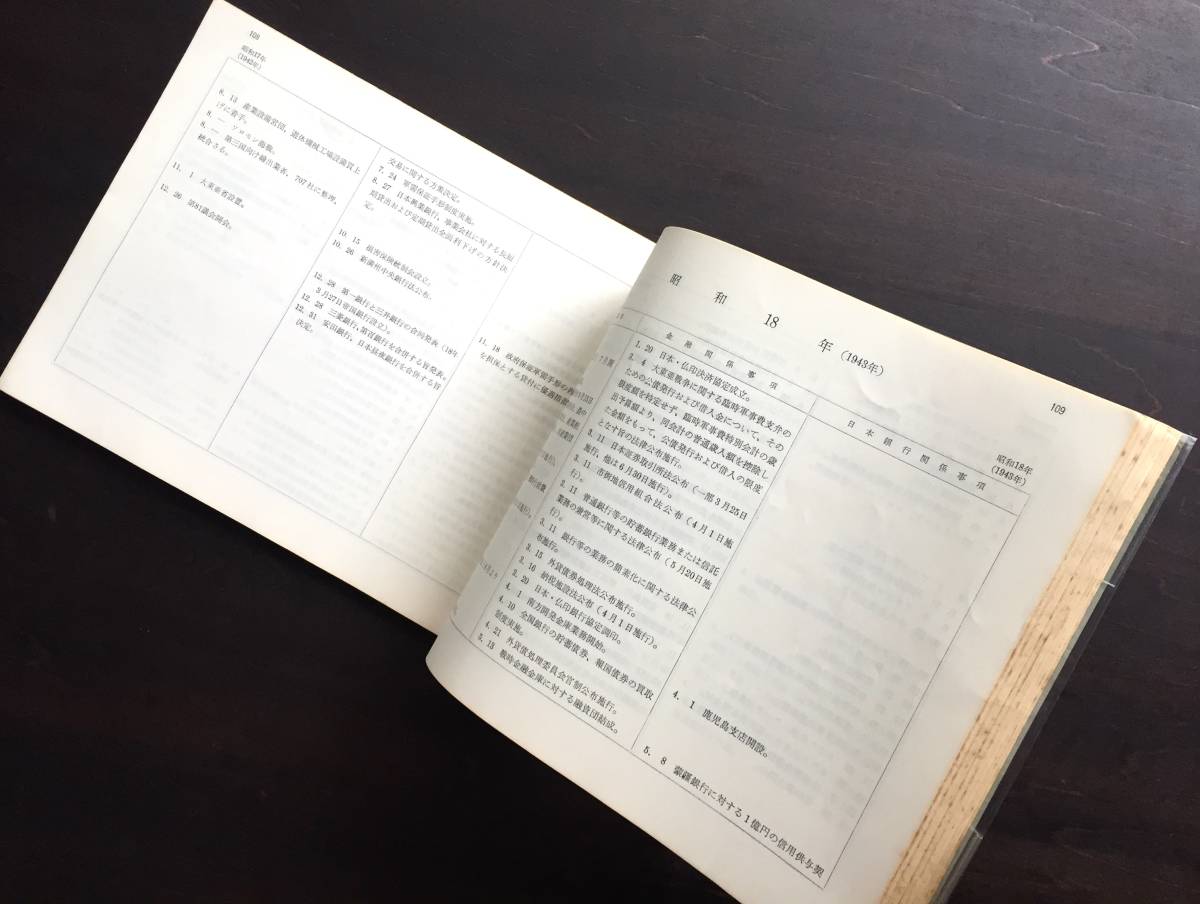 108
昭和17年
(1942年)
8. 13 産業設備営団，遊休機械工場設備買上
げに着手。
8. ― ソロモン海戦。
8. ― 第三国向け輸出業者，707社に整理，
統合さる。
11. 1 大東亜省設置。
12. 26 第81議会開会。
交易に関する方策決定。
7. 24 軍需保証手形制度実施。
8. 27 日本興業銀行，事業会社に対する長短
期貸出および定期貸出全面利下げの方針決
定。
10. 15 損害保険統制会設立。
10. 26 新満州中央銀行法公布。
12. 28 第一銀行と三井銀行の合同発表（18年
3月27日帝国銀行設立）。
12. 28 三菱銀行，第百銀行を合併する旨発表。
12. 31 安田銀行，日本昼夜銀行を合併する旨
決定。
11. 18 政府保証軍需手形の
を担保とする貸付に優遇
昭和18年（1943年）
109
昭和18年
(1943年)
金融関係事項
1. 20 日本・仏印決済協定成立。
3. 4 大東亜戦争に関する臨時軍事費支弁の
ための公債発行および借入金について，その
限度額を特定せず，臨時軍事費特別会計の歳
出予算額より，同会計の普通歳入額を控除し
た金額をもって，公債発行および借入の限度
となす旨の法律公布施行。
3. 11 日本証券取引所法公布（一部3月25日
施行，他は6月30日施行）。
3. 11 市街地信用組合法公布（4月1日施
行）。
3. 11 普通銀行等の貯蓄銀行業務または信託
業務の兼営等に関する法律公布（5月20日施
行）。
3. 11 銀行等の業務の簡素化に関する法律公
布施行。
3. 15 外貨債券処理法公布施行。
3. 16 納税施設法公布（4月1日施行）。
3. 20 日本・仏印銀行協定調印。
4. 1 南方開発金庫業務開始。
4. 10 全国銀行の貯蓄債券，報国債券の買取
制度実施。
4. 21 外貨債処理委員会官制公布施行。
5. 13 戦時金融金庫に対する融資団結成。
日本銀行関係事項
4. 1 鹿児島支店開設。
5. 8 蒙疆銀行に対する1億円の信用供与契